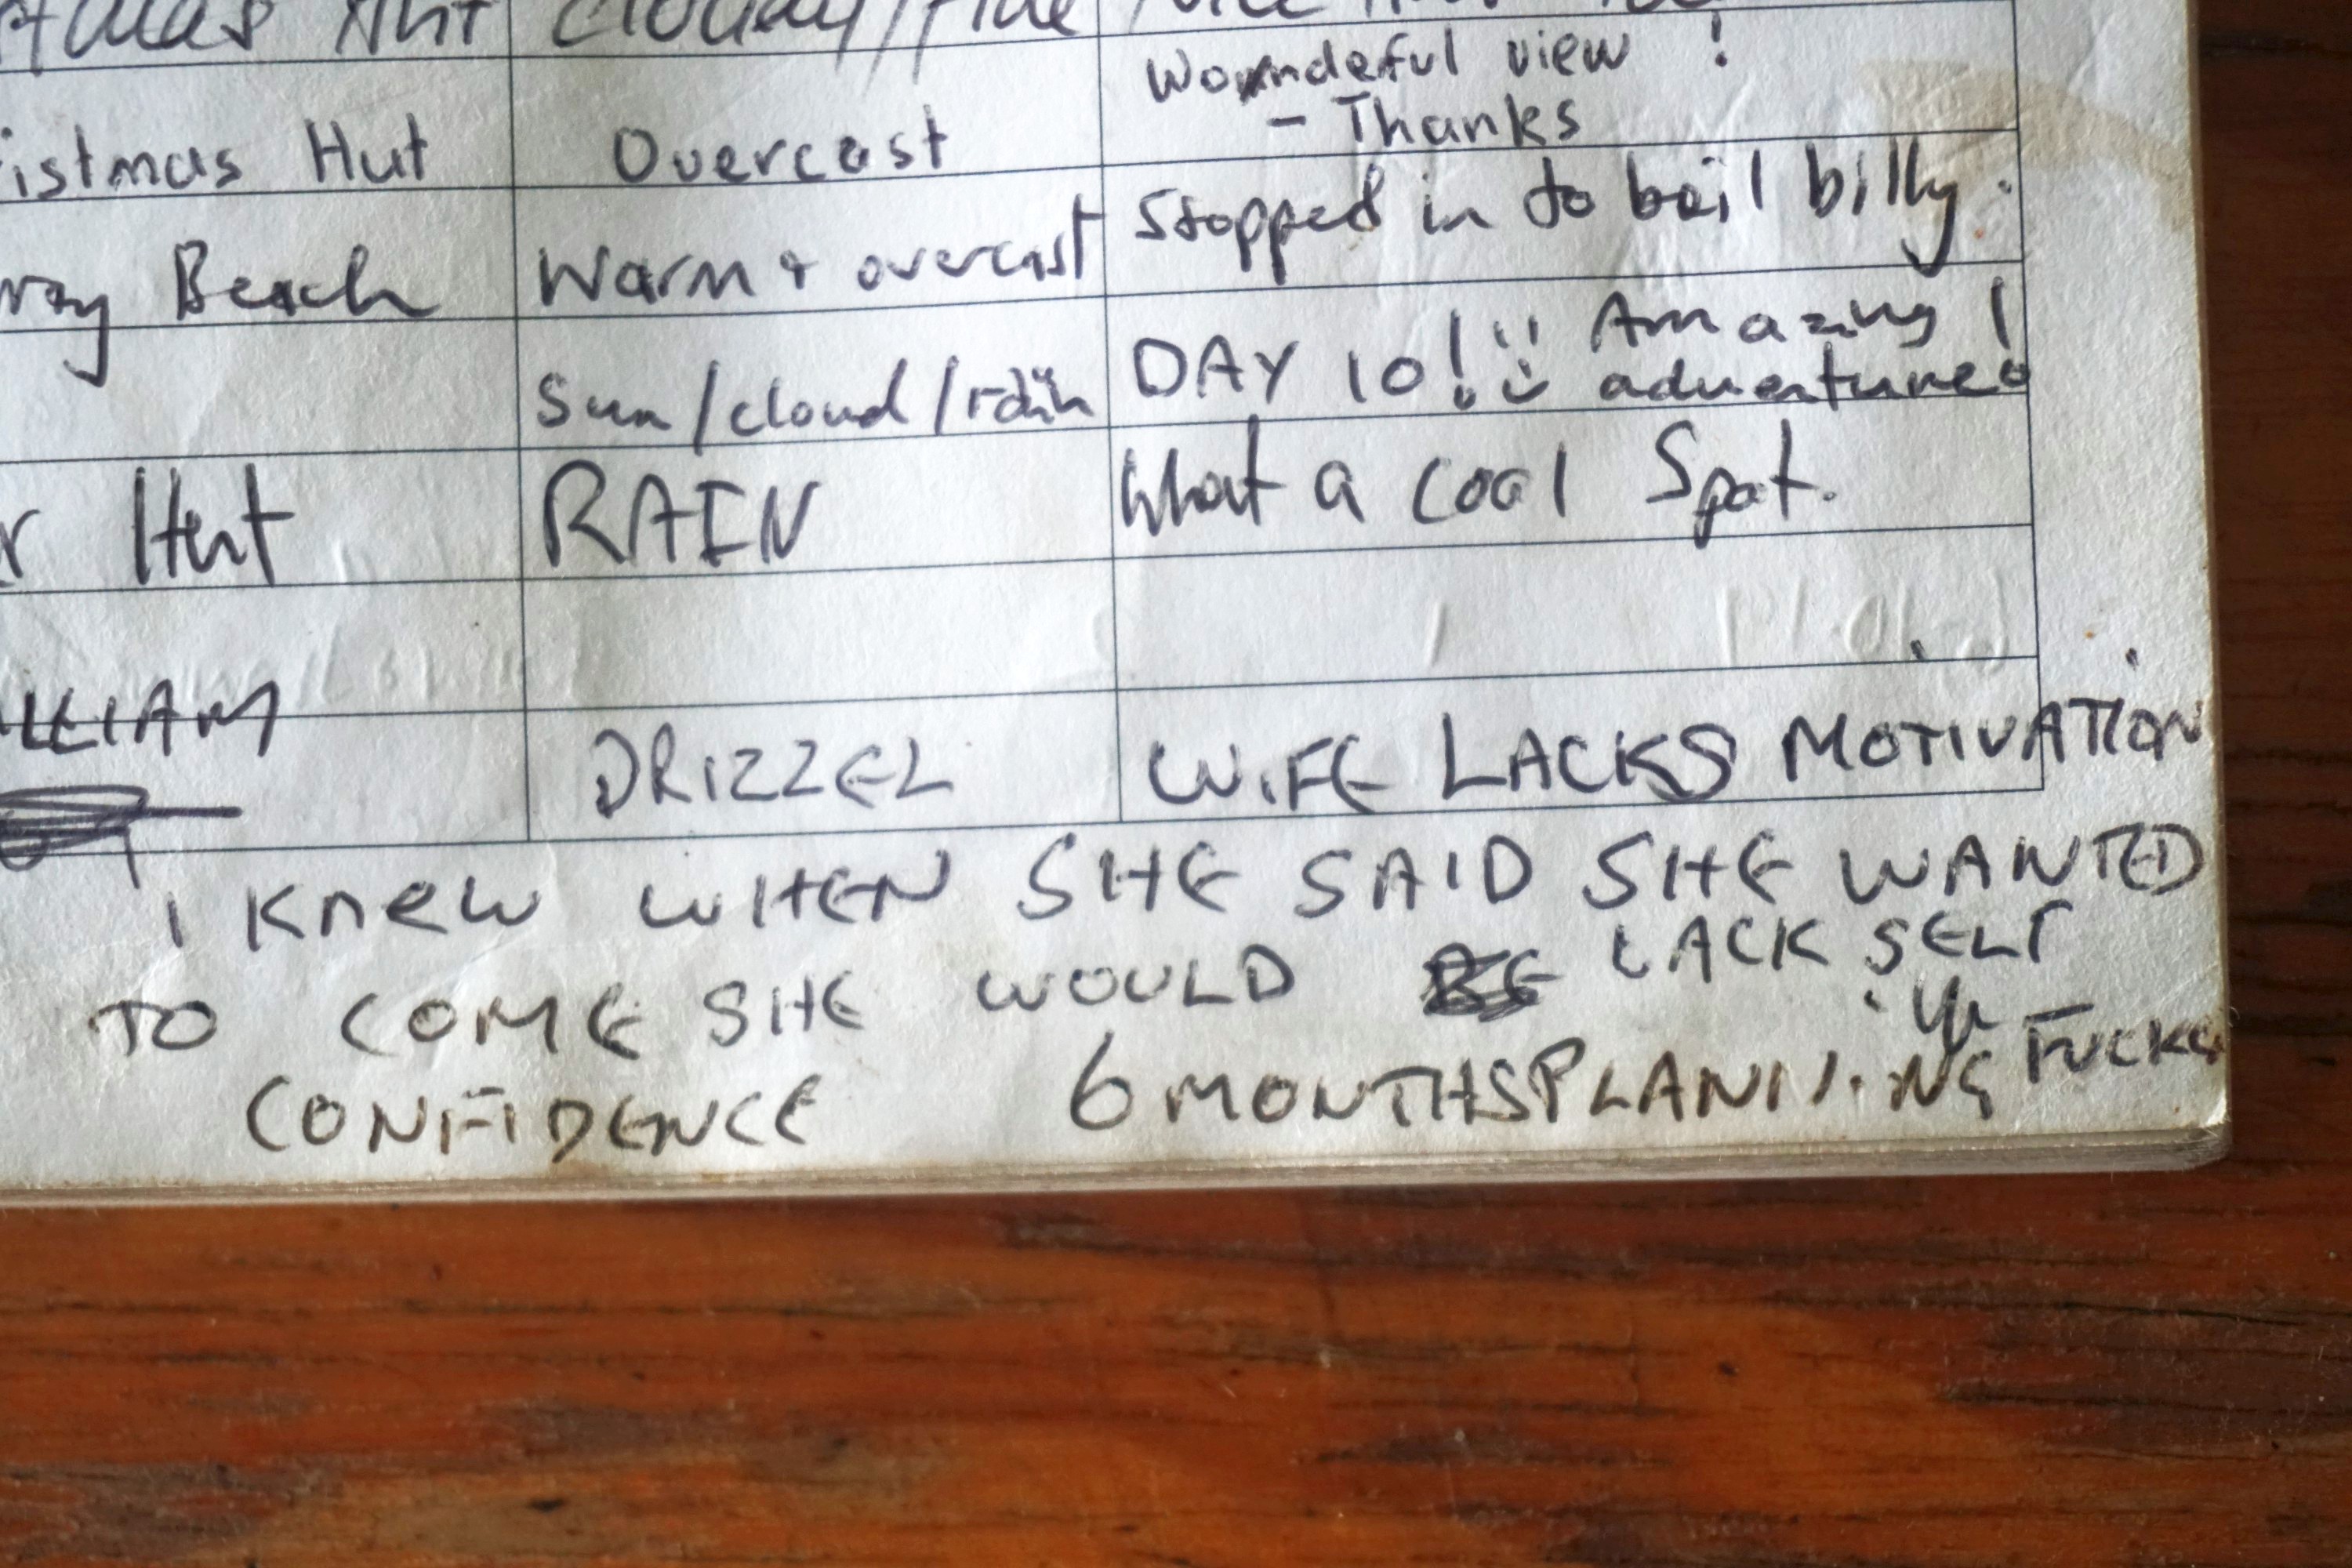 Hut Cloudy/Fine
Wonderful view !
istmas Hut Overcast - Thanks
Beach Warm + overcast Stopped in to boil billy.
Sun/cloud/rain DAY 10! Amazing !
adventure
r Hut RAIN What a cool Spot.
LLIAM DRIZZEL WIFE LACKS MOTIVATION
I KNEW WHEN SHE SAID SHE WANTED
TO COME SHE WOULD LACK SELF
CONFIDENCE 6 MONTHS PLANNING FUCKED
UP